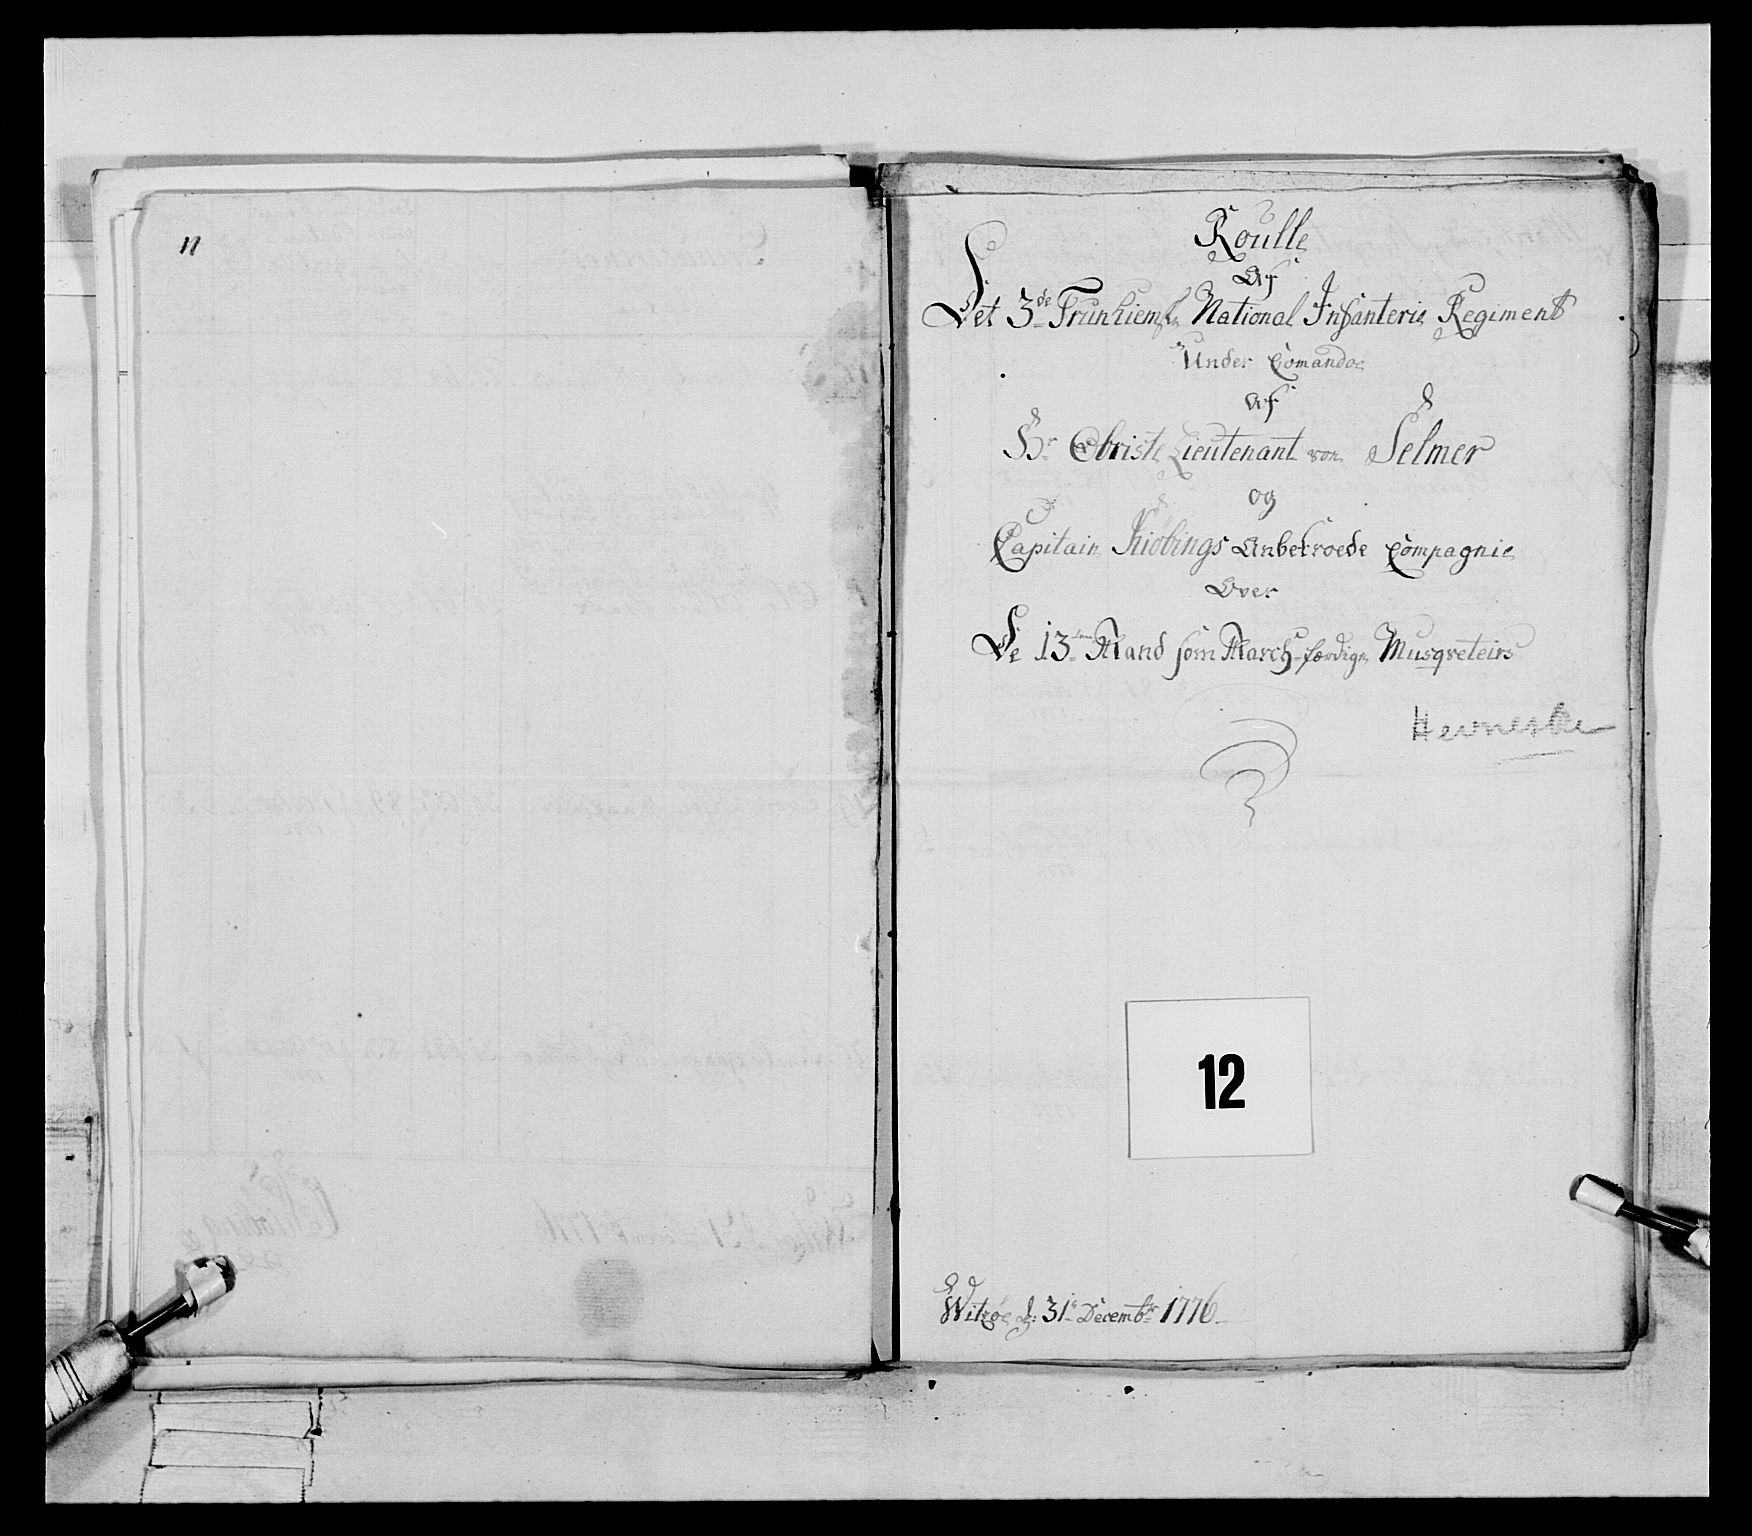 11
Roulle
Af
Det 3de Trunhiemske National Infanterie Regiment
Under Comandoe
af
Hr Obriste Lieutenant von Selmer
og
Capitain Kiöbings Anbetroede Compagnie
Over
De 13 Mand som March-færdige Musqveteirs
Hevneske
12
Witzøe d: 31te Decembr 1776